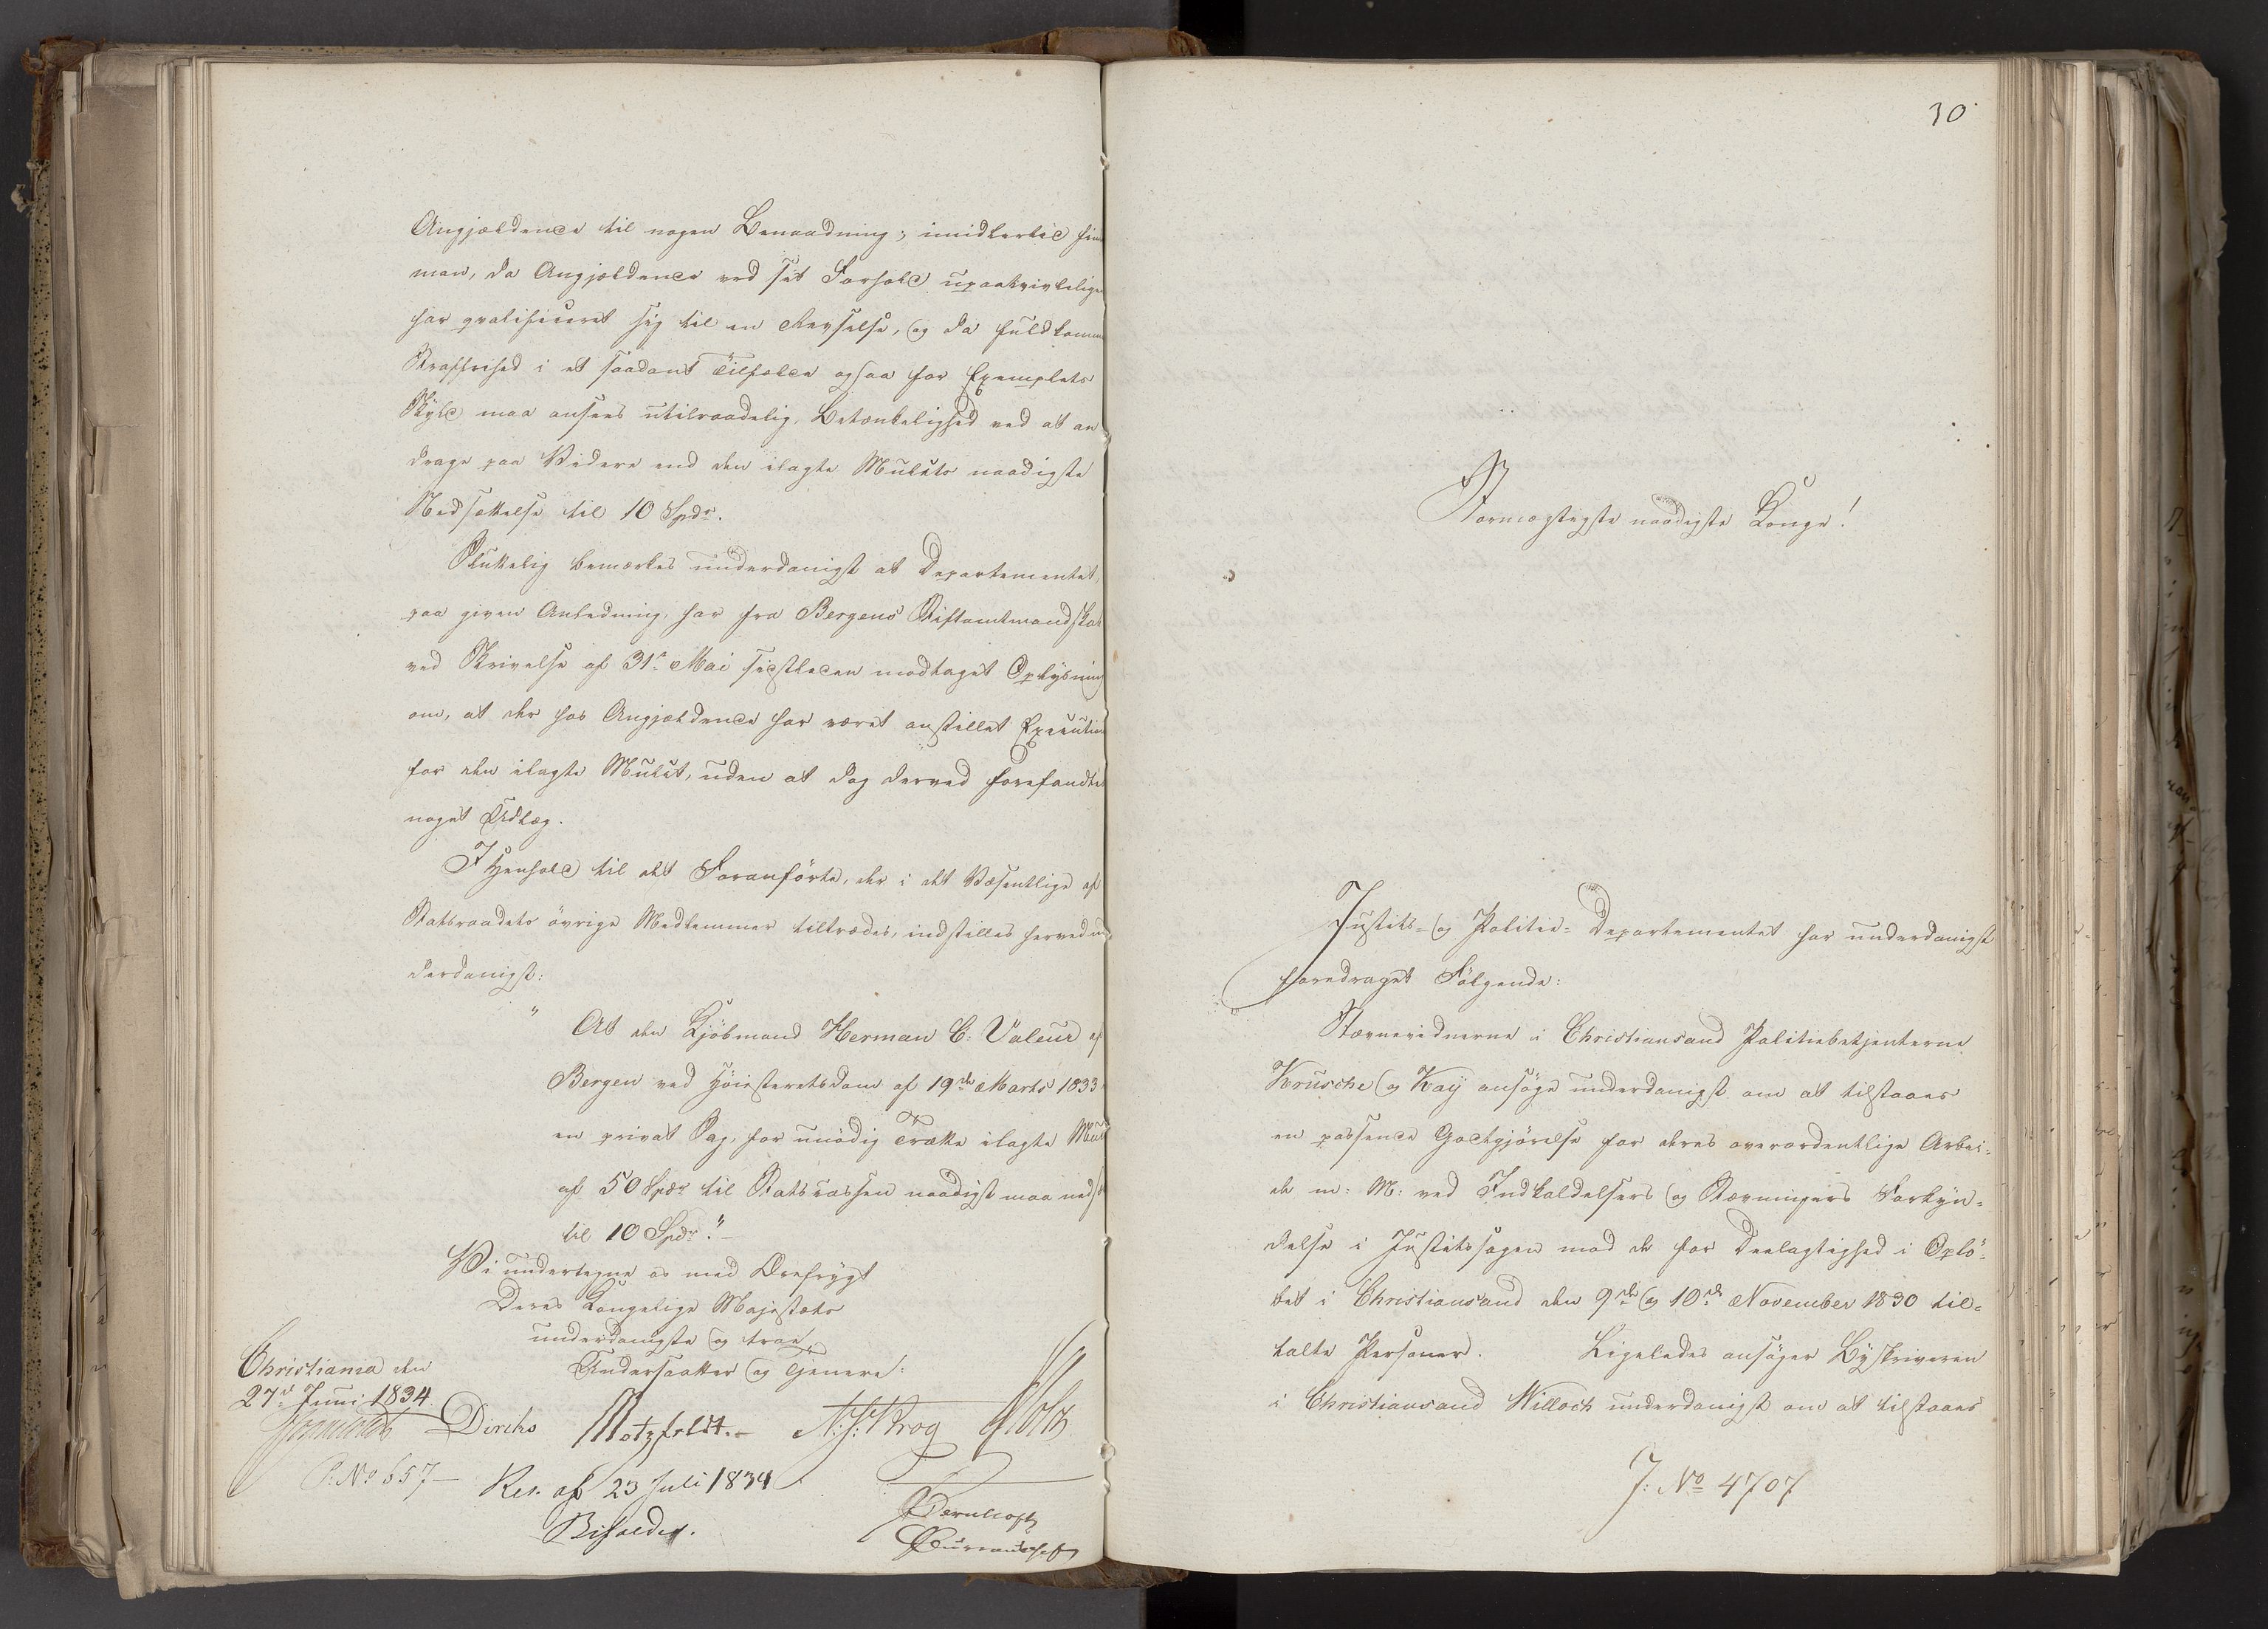 Angjældende til nogen Benaadning; imidlertid fin
man, da Angjældende ved sit Forhold upaatvivlelige
har qvalificeret sig til en Revselse, og da fuldkomm
Straffrihed i et saadant Tilfælde ogsaa for Exemplets
Skyld maa ansees utilraadelig, Betænkelighed ved at an
drage paa Videre end den ilagte Mulcts naadigste
Nedsættelse til 10 Spdr.
Sluttelig bemærkes underdanigst at Departementet,
paa given Anledning, har fra Bergens Stiftamtmandskab
ved Skrivelse af 31te Mai sidstleden modtaget Oplysning
om, at der hos Angjældende har været anstillet Execution
for den ilagte Mulct, uden at dog derved forefandtes
noget Udlæg.
I Henhold til det Foranførte, der i det Væsentlige af
Statsraadets øvrige Medlemmer tiltrædes, indstilles herved un
derdanigst:
" At den Kjöbmand Herman C: Valeur af
Bergen ved Höiesteretsdom af 19de Marts 1833
en privat Sag, for unödig Trætte ilagte Mulc
af 50 Spdr til Statscassen naadigst maa neds
til 10 Spdr."
Vi undertegne os med Ærefrygt
Deres Kongelige Majestæts
underdanigste og troe
Undersaatter og Tjenere:
Christiania den
27d Juni 1834
Diriks Motzfeldt. N: J: Krog Holst
P: No 657
Res. af 23 Juli 1834
Bifaldes.
30
Stormægtigste naadigste Konge!
Justits- og Politie-Departementet har underdanigst
foredraget Følgende:
Stævnevidnerne i Christiansand Politiebetjenterne
Krusche og Kaÿ ansöge underdanigst om at tilstaaes
en passende Godtgjörelse for deres overordentlige Arbei-
de m: M: ved Indkaldelsers og Stævningers Forkyn-
delse i Justitssagen mod de for Deelagtighed i Oplö-
bet i Christiansand den 9de og 10de November 1830 til-
talte Personer. Ligeledes ansöger Byskriveren
i Christiansand Willoch underdanigst om at tilstaaes
J: No 4707